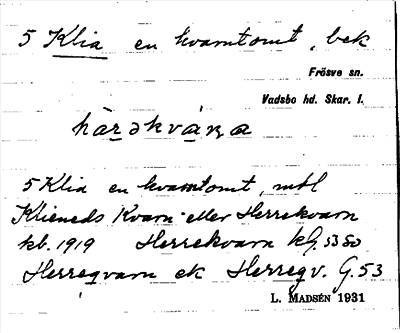 5 Klia en kvarntomt, bek
Frösve sn.
Vadsbo hd. Skar. l.
hàrəkvána
5 Klia en kvarntomt, mtl
Klieneds Kvarn eller Herrekvarn
kb. 1919 Herrekvarn kG. 53 SO
Herreqvarn ek Herreqv. G. 53
L. MADSÉN 1931